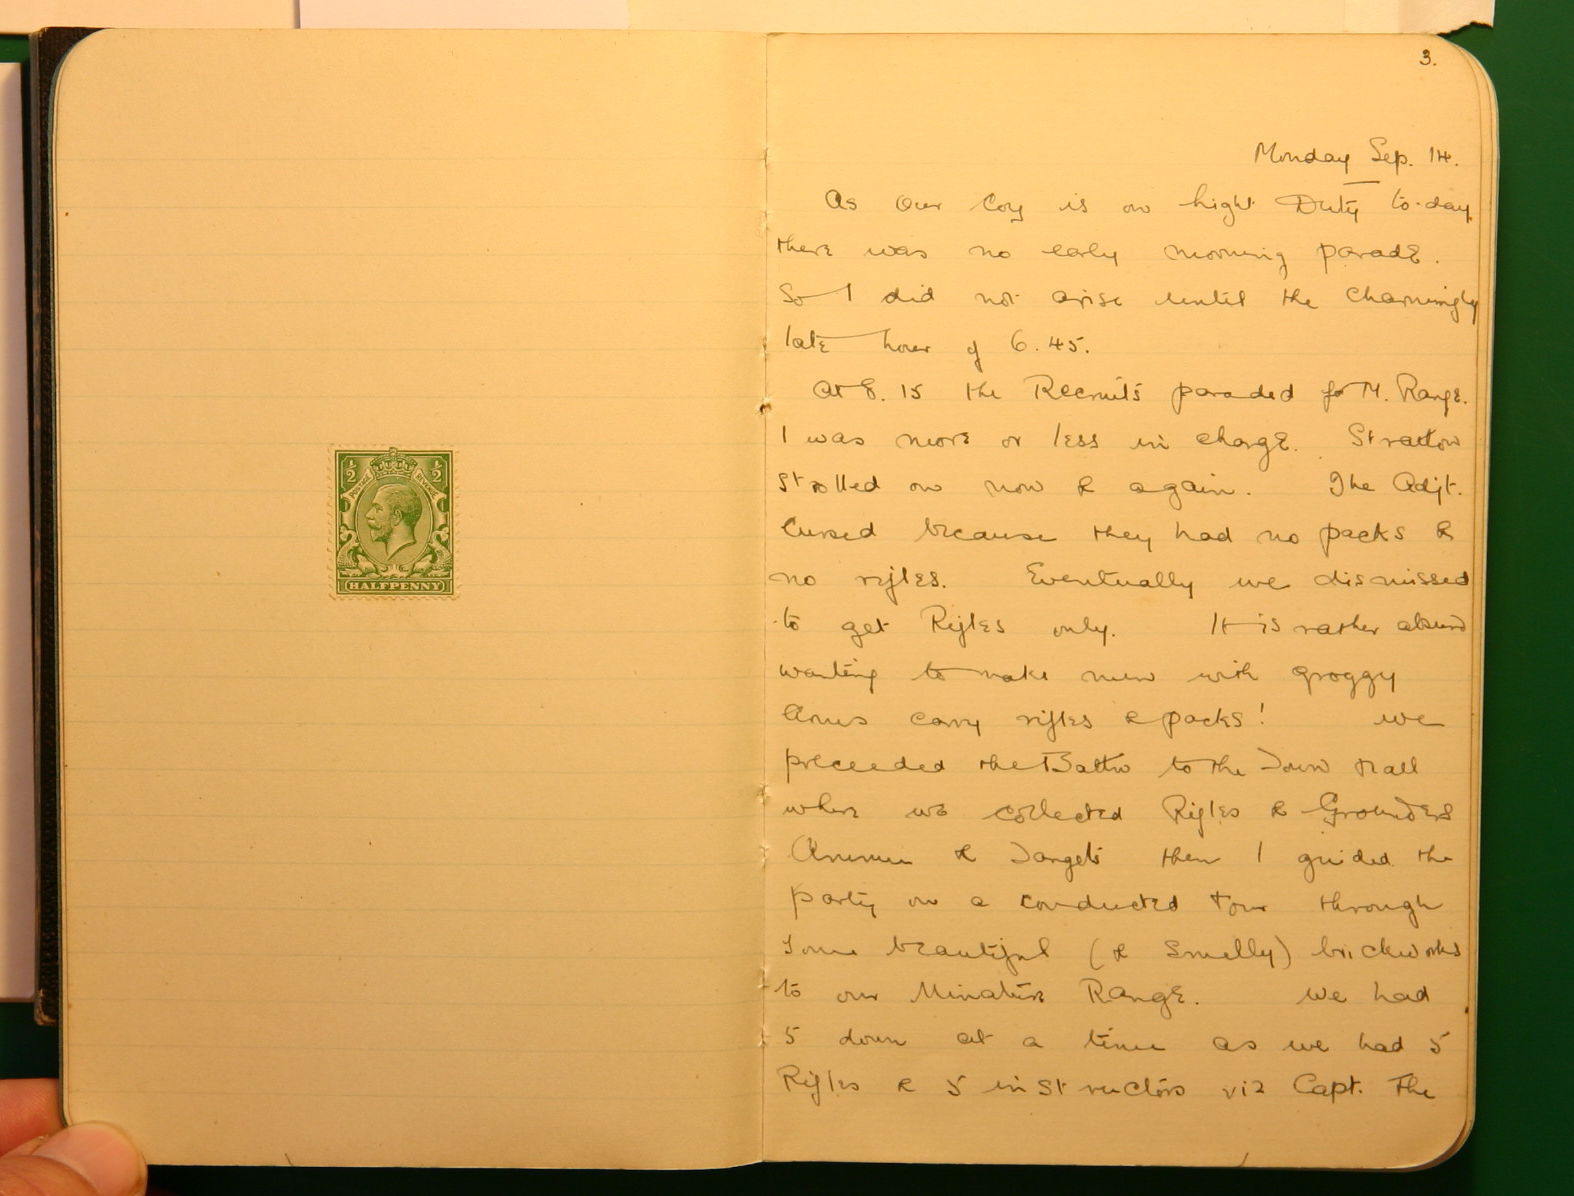 ½ ½
POSTAGE REVENUE
HALFPENNY
3.
Monday Sep. 14.
As our Coy is on night Duty to-day
there was no early morning parade.
So I did not arise until the charmingly
late hour of 6.45.
At 8.15 the Recruits paraded for M. Range.
I was more or less in charge. Stratton
strolled on now & again. The Adjt.
cursed because they had no packs &
no rifles. Eventually we dismissed
to get Rifles only. It is rather absurd
wanting to make men with groggy
arms carry rifles & packs! We
preceeded the Battn to the Town Hall
where we collected Rifles &
Ammn & Targets then I guided the
party on a conducted tour through
some beautiful (& smelly) brickworks
to our Minature Range. We had
5 down at a time as we had 5
Rifles & 5 instructors viz Capt. The